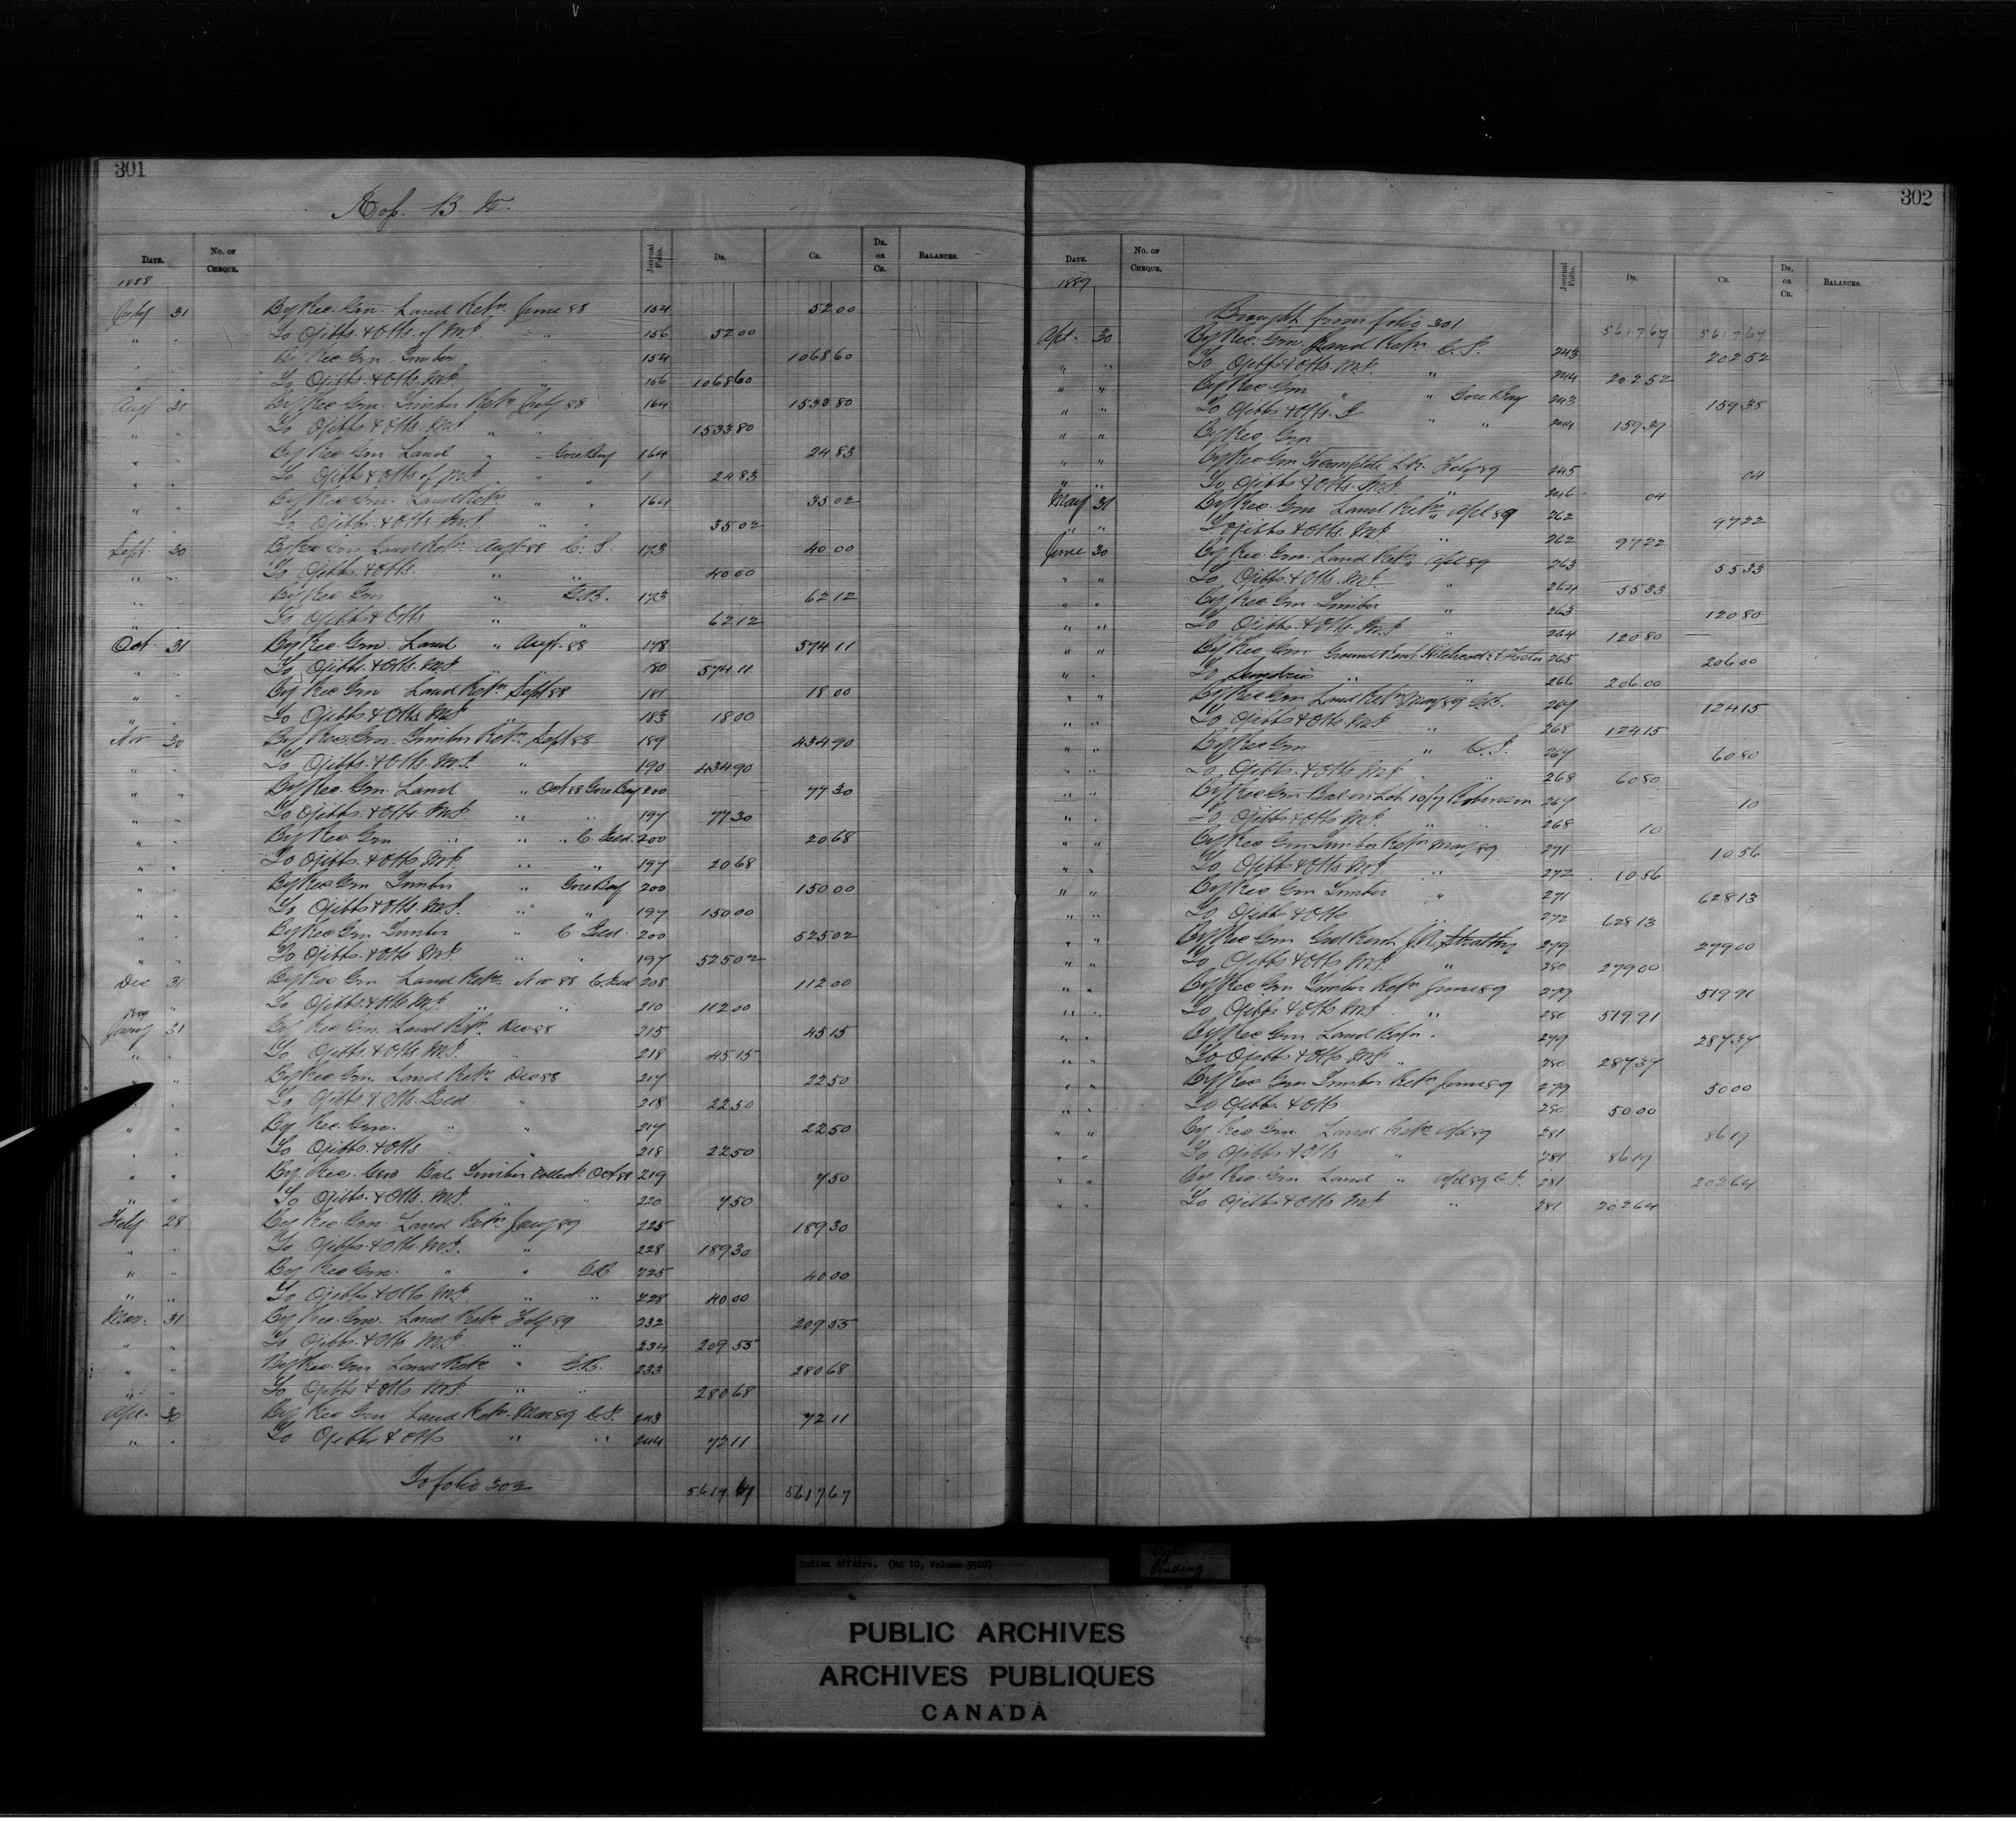 301
Date.
No. of Cheque.
Journal Folio.
Dr.
Cr.
Dr. or Cr.
Balances.
1888
July 31 By Rec. Gen. Land Retn. June 88 154 52 00
" " To Ojibbs. & Otts. of M.I. " 156 52 00
" " By Rec. Gen. Timber " 154 1068 60
" " To Ojibbs. & Otts. M.I. " 156 1068 60
Augt 31 By Rec. Gen. Timber Retn. July 88 164 1533 80
" " To Ojibbs. & Otts. M.I. " " 1533 80
" " By Rec. Gen. Land " " Gore Bay 164 24 83
" " To Ojibbs & Otts of M.I. " " 24 83
" " By Rec. Gen. Land Retn. " " 164 35 02
" " To Ojibbs. & Otts. M.I. " " 35 02
Sept. 30 By Rec. Gen. Land Retn. Augt. 88 C.I. 173 40 00
" " To Ojibbs. & Otts. " " 40 00
" " By Rec. Gen " G.B. 173 62 12
" " To Ojibbs & Otts " " 62 12
Oct. 31 By Rec. Gen. Land " Augt. 88 178 574 11
" " To Ojibbs. & Otts. M.I. " " 180 574 11
" " By Rec Gen Land Retn Sept 88 181 18 00
" " To Ojibbs. & Otts. M.I. " 183 18 00
Nov 30 By Rec. Gen. Timber Retn. Sept 88 189 434 90
" " To Ojibbs. & Otts. M.I. " 190 434 90
" " By Rec. Gen. Land " Oct 88 Gore Bay 200 77 30
" " To Ojibbs. & Otts M.I. " " 197 77 30
" " By Rec Gen " " " C. Isld. 200 20 68
" " To Ojibbs. & Otts M.I. " " 197 20 68
" " By Rec Gen Timber " Gore Bay 200 150 00
" " To Ojibbs & Otts. M.I. " " 197 150 00
" " By Rec Gen. Timber " C. Isld. 200 525 02
" " To Ojibbs. & Otts M.I. " " 197 525 02
Dec 31 By Rec Gen Land Retn. Nov 88 C. Isld 208 112 00
" " To Ojibbs. & Otts M.I. " " 210 112 00
1889
Jany 31 By Rec Gen. Land Retn. Dec 88 215 45 15
" " To Ojibbs. & Otts M.I. " 218 45 15
" " By Rec. Gen. Land Retn. Dec 88 217 22 50
" To Ojibbs & Otts. Isld. " 218 22 50
" " By Rec. Gen. " " 217 22 50
" " To Ojibbs. & Otts " 218 22 50
" " By Rec. Gen Bal. Timber Collect. Oct 88 219 7 50
" " To Ojibbs. & Otts. M.I. " " 220 7 50
Feby. 28 By Rec. Gen. Land Retn. Jany 89 225 189 30
" " To Ojibbs. & Otts. M.I. " 228 189 30
" " By Rec Gen. " " G.B 225 40 00
" " To Ojibbs. & Otts. M.I. " " 228 40 00
Mar. 31 By Rec. Gen. Land Retn. Feby 89 232 209 55
" " To Ojibbs. & Otts M.I. " 234 209 55
" " By Rec. Gen Land Retn " G.B. 233 280 68
" " To Ojibbs & Otts M.I. " " 280 68
Apl. 30 By Rec Gen Land Retn. Mar 89 C.I. 243 72 11
" " To Ojibbs & Otts " " 244 72 11
To folio 302 5617 67 5617 67
302
Date.
No. of Cheque.
Journal Folio.
Dr.
Cr.
Dr. or Cr.
Balances.
1889
Brought from folio 301 5617 67 5617 67
Apl. 30 By Rec. Gen. Land Retn C.I. 243 202 52
" " To Ojibbs & Otts. M.I. " 244 202 52
" " By Rec. Gen " " Gore Bay 243 159 38
" " To Ojibbs & Otts. I " " 244 159 39
" " By Rec. Gen
" " By Rec Gen Feby 89 245 04
" " To Ojibbs & Otts. M.I. " 246 04
May 31 By Rec. Gen Land Retn Apl 89 262 97 22
" " To Ojibbs & Otts. M.I " 262 97 22
June 30 By Rec. Gen. Land Retn. Apl 89 263 55 33
" " To Ojibbs & Otts. M.I. " 264 55 33
" " By Rec Gen Timber " 263 120 80
" " To Ojibbs. & Otts. M.I " 264 120 80
" " By Rec Gen Ground Rent 265 206 00
" " To Sundries " " 266 206 00
" " By Rec Gen Land Retn May 89 G.B. 267 124 15
" " To Ojibbs & Otts M.I. " 268 124 15
" " By Rec Gen " C.I. 267 60 80
" " To Ojibbs. & Otts M.I. " " 268 60 80
" " By Rec Gen Bal on Lot 10/7 Robinson 267 10
" " To Ojibbs & Otts M.I. " " 268 10
" " By Rec Gen Timber Retn May 89 271 10 56
" " To Ojibbs & Otts M.I. " 272 10 56
" " By Rec Gen Timber " 271 628 13
" " To Ojibbs & Otts " 272 628 13
" " By Rec Gen Grd Rent J.N. Strathy 279 279 00
" " To Ojibbs & Otts M.I. " 280 279 00
" " By Rec Gen Timber Retn June 89 279 519 91
" " To Ojibbs & Otts M.I. " 280 519 91
" " By Rec Gen Land Retn " 279 287 37
" " To Ojibbs & Otts M.I. " 280 287 37
" " By Rec Gen Timber Retn June 89 279 50 00
" " To Ojibb. & Otts 280 50 00
" " By Rec Gen Land Retn Apl 89 281 86 19
" " To Ojibbs & Otts " 281 86 19
" " By Rec Gen Land " Apl 89 C.I. 281 202 64
" " To Ojibb & Otts M.I " 281 202 64
Indian Affairs. (RG 10, Volume 5920)
Tight Binding
PUBLIC ARCHIVES
ARCHIVES PUBLIQUES
CANADA